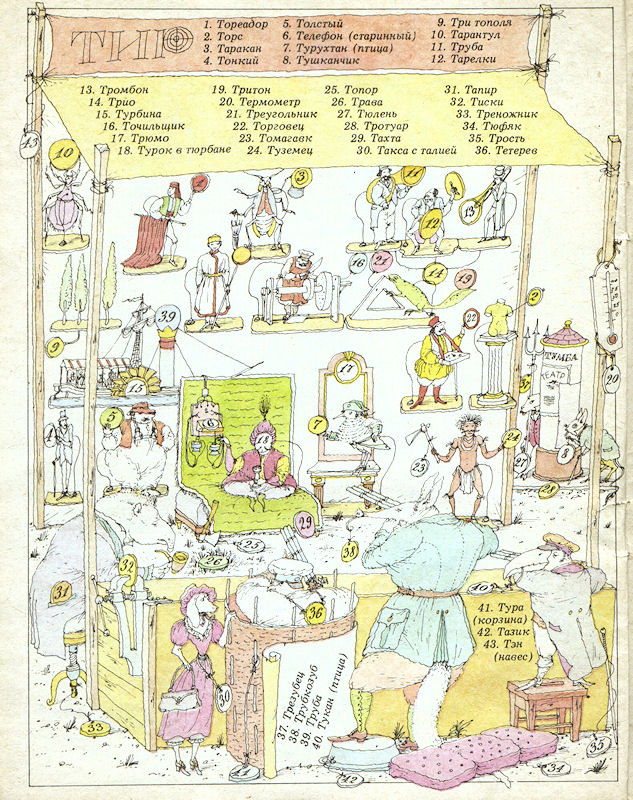 ТИР
1. Тореадор
2. Торс
3. Таракан
4. Тонкий
5. Толстый
6. Телефон (старинный)
7. Турухтан (птица)
8. Тушканчик
9. Три тополя
10. Тарантул
11. Труба
12. Тарелки
13. Тромбон
14. Трио
15. Турбина
16. Точильщик
17. Трюмо
18. Турок в тюрбане
19. Тритон
20. Термометр
21. Треугольник
22. Торговец
23. Томагавк
24. Туземец
25. Топор
26. Трава
27. Тюлень
28. Тротуар
29. Тахта
30. Такса с талией
31. Тапир
32. Тиски
33. Треножник
34. Тюфяк
35. Трость
36. Тетерев
43
10
1
3
11
12
13
16
21
14
19
2
9
39
22
15
17
ТУМБА
ТЕАТР
20
5
6
7
18
23
24
8
27
29
25
26
38
31
32
36
40
41. Тура
(корзина)
42. Тазик
43. Тэн
(навес)
30
37. Трезубец
38. Трубкозуб
39. Труба
40. Тукан (птица)
33
41
42
34
35